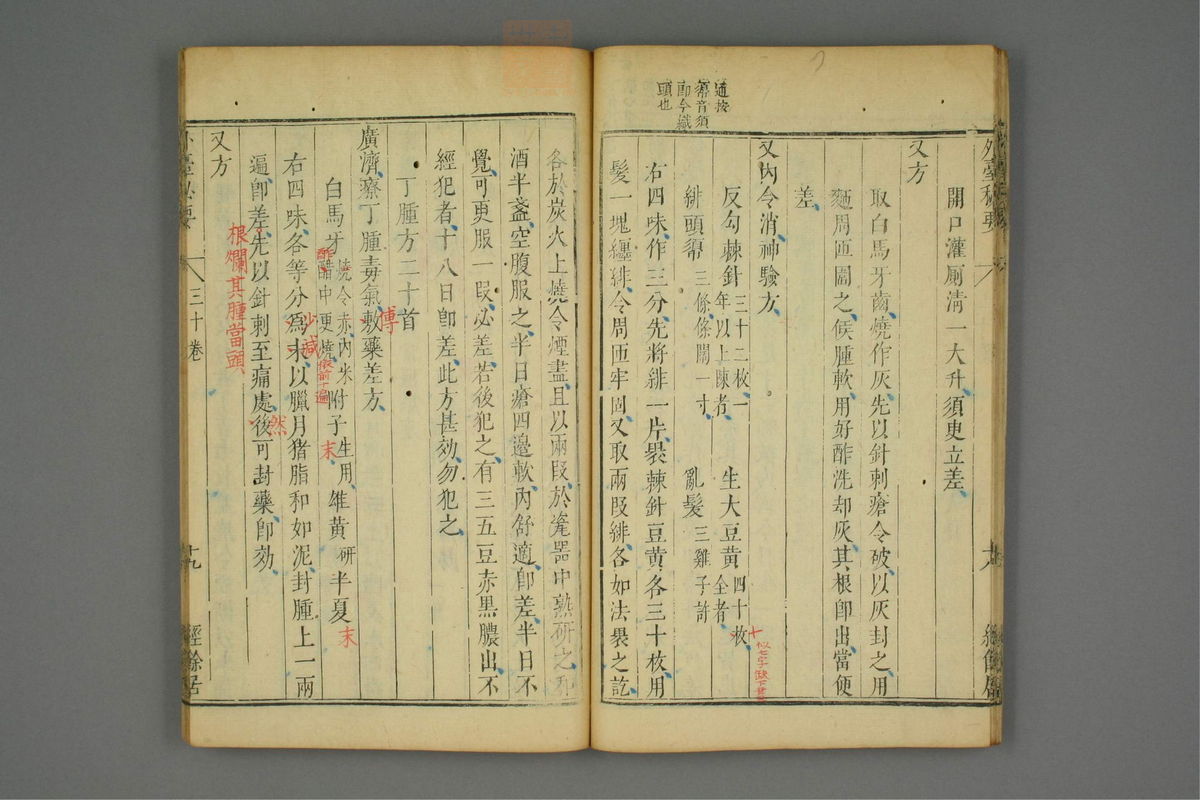 外臺秘要
開口灌厠清一大升須更立差
又方
取白馬牙齒燒作灰先以針刺瘡令破以灰封之用
麵周匝圍之候腫軟用好酢洗却灰其根即出當便
差
又内令消神驗方
反勾棘針三十二枚一年以上陳者 生大豆黄四十枚全者
緋頭𢄼三條條闊一寸 亂髮三雞子許
右四味作三分先將緋一片裹棘針豆黄各三十枚用
髮一塊纏緋令周匝牢固又取兩段緋各如法裹之訖
通按
音須
即今緘
頭也
各於炭火上燒令煙盡且以兩段於瓷器中熟研之和
酒半盞空腹服之半日瘡四邊軟内舒適即差半日不
覺可更服一段必差若後犯之有三五豆赤黒膿出不
經犯者十八日即差此方甚効勿犯之
丁腫方二十首
廣濟療丁腫毒氣敷藥差方
傅
白馬牙燒令赤内米醋中更燒 附子生用 雄黄研 半夏
酢
末
末
右四味各等分爲末以臘月猪脂和如泥封腫上一兩
遍即差先以針刺至痛處後可封藥即効
然
根爛其腫當頭
又方
三十卷
十九
經餘居